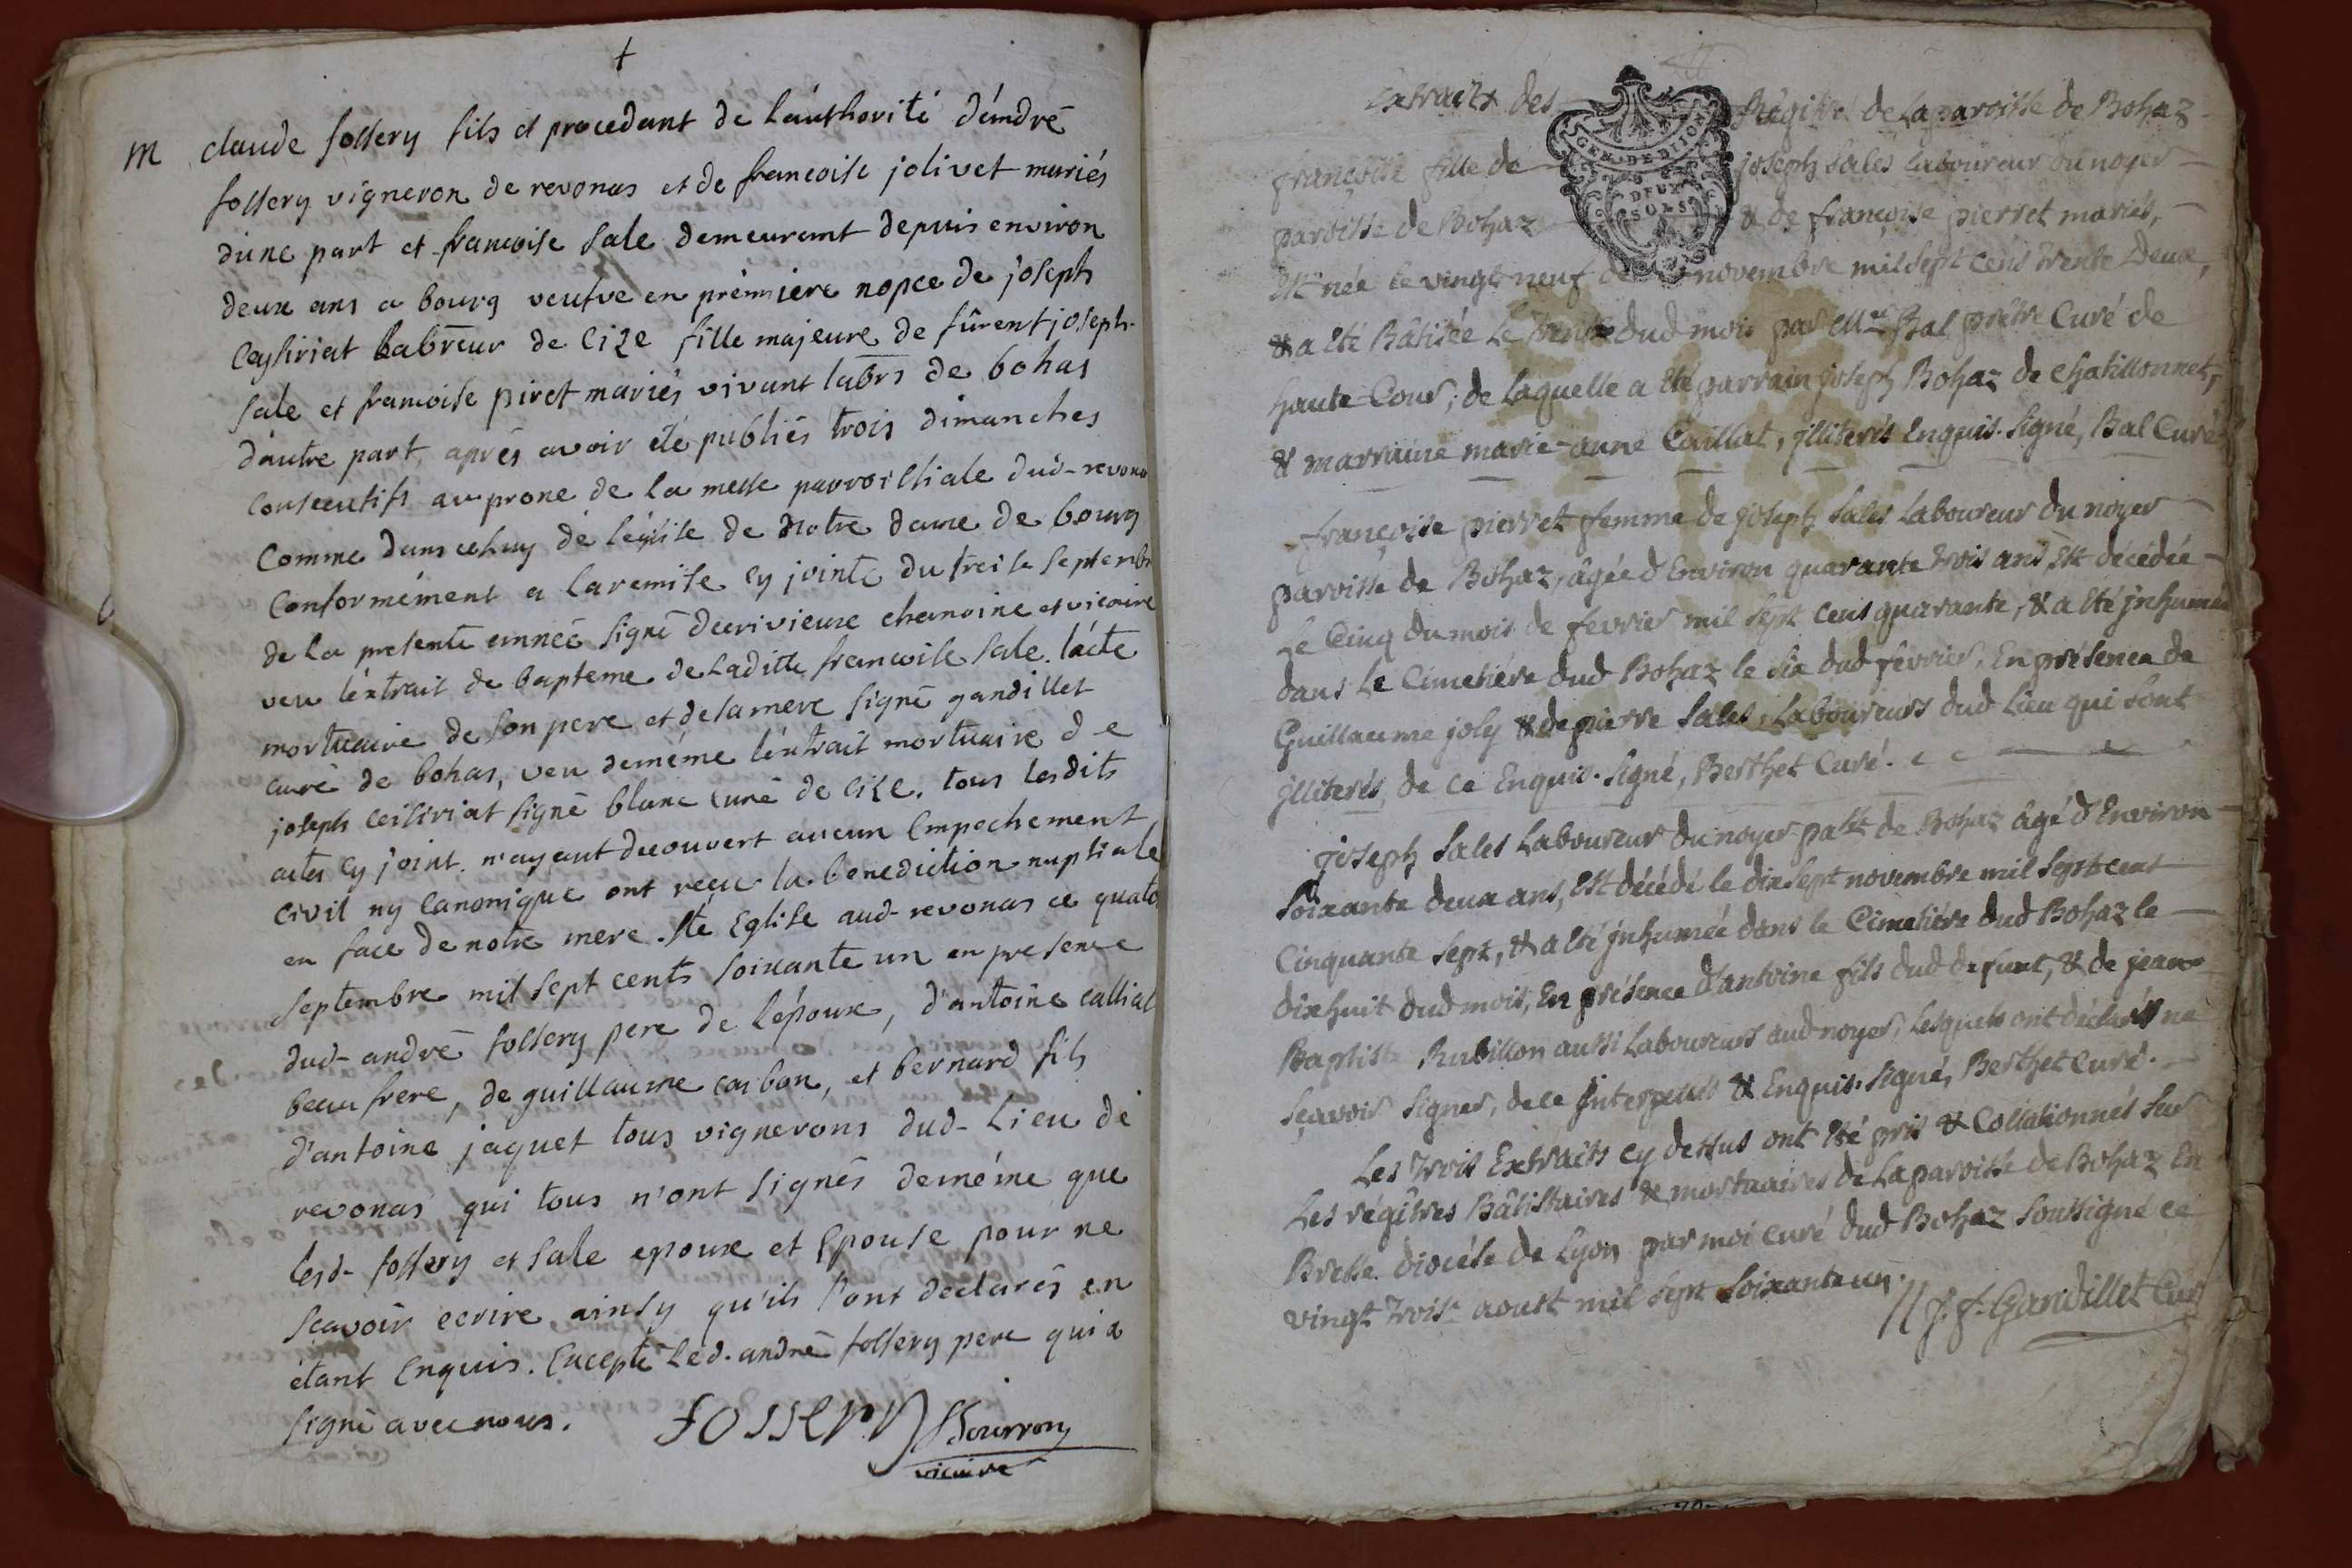 +
m claude fossery fils et procedant de l'authorité d'andré
fossery vigneron de revonas et de francoise jolivet mariés
d'une part et francoise sale demeurant depuis environ
deux ans a bourg veufve en première nopce de joseph
ceysiriat labreur de cize fille majeure de fûrent joseph
sale et francoise piret mariés vivant labrs de bohas
d'autre part, après avoir été publiés trois dimanches
consecutifs au prone de la messe parroissiale dud- revonas
comme dans celuy de l'église de notre dame de bourg
conformément a la remise cy jointe du treise septembre
de la presente année signé decrivieux chanoine et vicaire
veu l'extrait de bapteme de laditte francoise sale. l'acte
mortuaire de son pere et de sa mere signé gandillet
curé de bohas, veu demême l'extrait mortuaire de
joseph ceisiriat signé blanc curé de cize. tous lesdits
actes cy joint. n'ayant decouvert aucun empechement
civil ny canonique ont reçu la benediction nuptiale
en face de notre mere Ste Eglise aud- revonas ce quato
septembre mil sept cents soixante un en presence
dud- andré fossery pere de l'époux, d'antoine calliat
beau frere, de guillaume carbon, et bernard fils
d'antoine jaquet tous vignerons dud- Lieu de
revonas qui tous n'ont signés demême que
lesd- fossery et sale epoux et Epouse pour ne
scavoir ecrire ainsy qu'ils l'ont declarés en
étant Enquis. Excepté led. andré fossery pere qui a
signé avec nous.
fossery
vicaire
Extraits des Régitres de La paroisse de Bohaz
GEN. DE DIJON
DEUX
SOLS
françoise fille de joseph Sales Laboureur du noyer
paroisse de Bohaz & de françoise pierret mariés,
Est née le vingt neuf de novembre mil sept cens trente Deux,
& a été Bâtisée Le trente dud mois par Mre Bal prêtre Curé de
haute Cour; de laquelle a été parrain joseph Bohaz de chatillonnet,
& marraine marie-anne Caillat, jlliterés Enquis. Signé, Bal Curé
françoise pierret femme de joseph Sales Laboureur du noyer
paroisse de Bohaz, âgée d'Environ quarante trois ans Est décédée
Le Cinq du mois de fevrier mil sept cens quarante, & a été jnhumée
dans Le Cimetiére dud Bohaz le six dud février, En présence de
Guillaume joly & de pierre Sales, Laboureurs dud Lieu qui sont
jlliterés, de ce Enquis. Signé, Berthet Curé.
joseph Sales Laboureur du noyer passe de Bohaz âgé d'Environ
Soixante deux ans, Est décédé le dix sept novembre mil sept cent
Cinquante sept, & a été jnhumée dans le Cimetiére dud Bohaz le
dix huit dud mois, En présence d'antoine fils dud defunt, & de jean
Baptiste Rubillon aussi Laboureurs aud noyer, Lesquels ont déclarés ne
sçavoir signer, de ce Interpellés & Enquis. Signé, Berthet Curé.
Les trois Extraits cy dessus ont été pris & Collationnés sur
Les régitres Bâtistaires & mortuaires de La paroisse de Bohaz En
Bresse diocése de Lyon par moi Curé dud Bohaz soussigné ce
vingt trois aoust mil sept soixante un.
J. f. Gandillet Curé